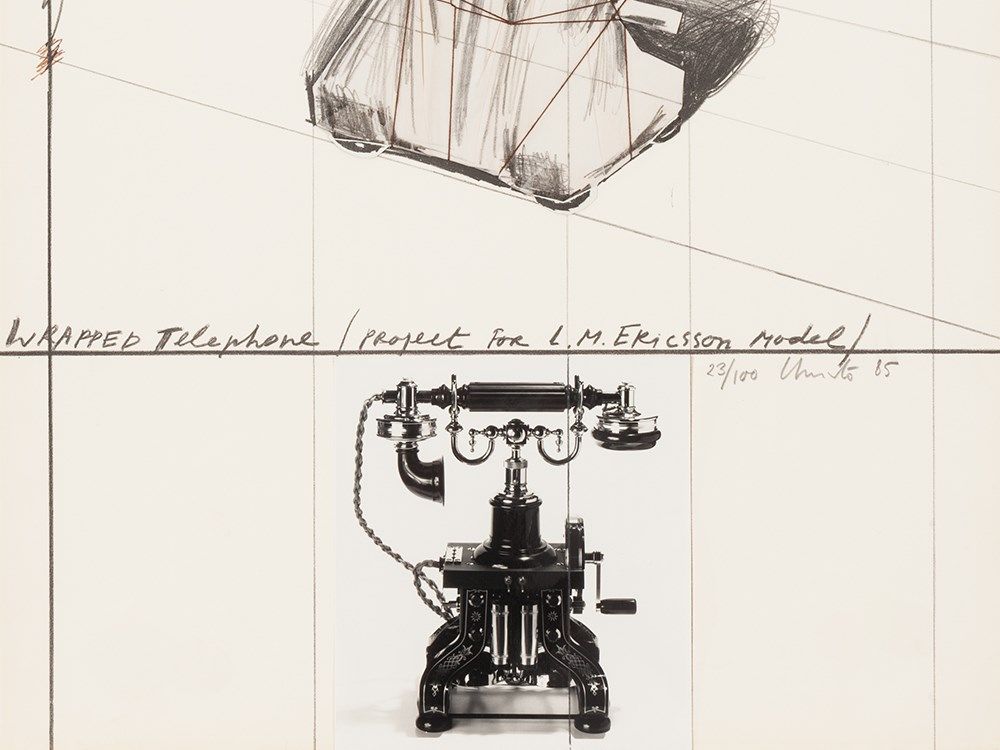 WRAPPED Telephone / PROJECT FOR L.M. ERICSSON Model /
23/100 Christo 85